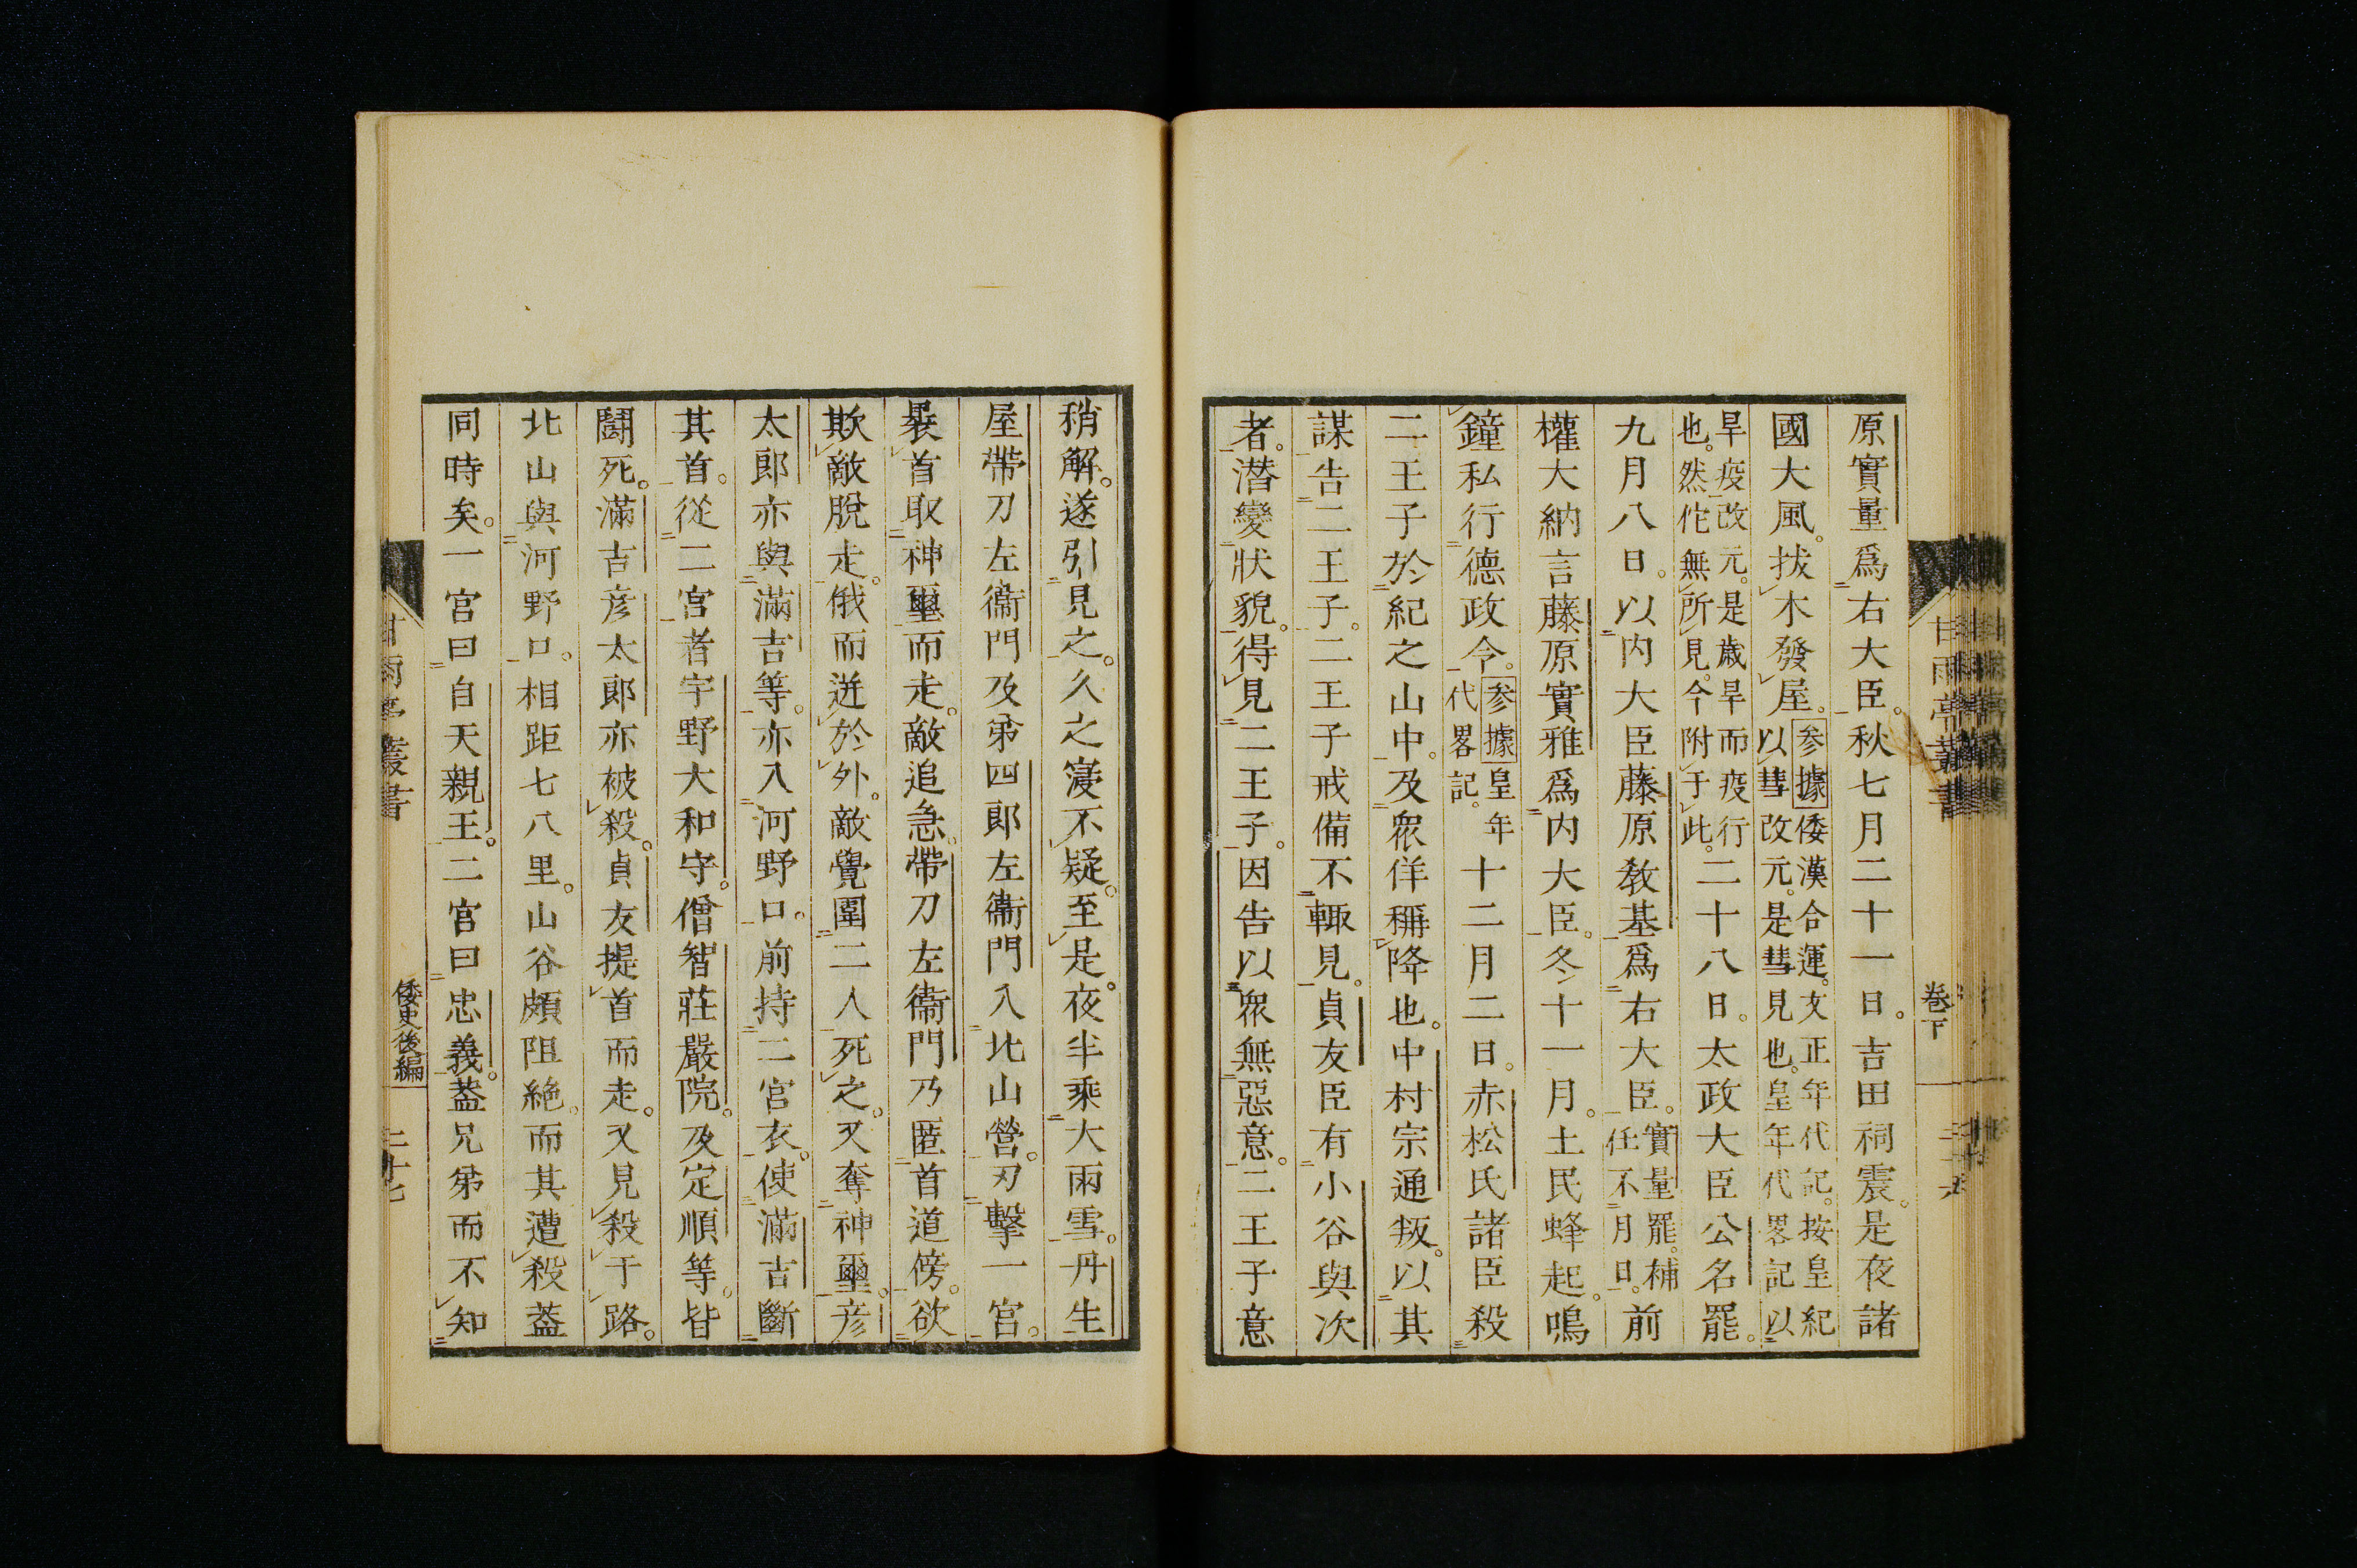 原實量爲右大臣。秋七月二十一日。吉田祠震。是夜諸
國大風。拔木發屋。参據倭漢合運。文正年代記。按皇紀
以彗改元。是彗見也。皇年代畧記以
旱疫改元。是歳旱而疫行
也。然佗無所見。今附于此。二十八日。太政大臣公名罷。
九月八日。以内大臣藤原敎基爲右大臣。實量罷。補
任不月日。前
權大納言藤原實雅爲内大臣。冬十一月。土民蜂起。鳴
鐘私行德政令。参據皇年
代畧記。十二月二日。赤松氏諸臣殺
二王子於紀之山中。及衆佯稱降也。中村宗通叛。以其
謀告二王子。二王子戒備不輙見。貞友臣有小谷與次
者。潜變狀貌。得見二王子。因告以衆無惡意。二王子意
稍解。遂引見之。久之寖不疑。至是。夜半乘大雨雪。丹生
屋帶刀左衞門及弟四郎左衞門入北山營。刃擊一宮。
褁首取神璽而走。敵追急。帶刀左衞門乃匿首道傍。欲
欺敵脫走。俄而迸於外。敵覺圍二人死之。又奪神璽。彦
太郎亦與滿吉等。亦入河野口。前持二宮衣。使滿吉斷
其首。從二宮者宇野大和守。僧智莊嚴院。及定順等。皆
鬪死。滿吉彦太郎亦被殺。貞友提首而走。又見殺于路。
北山與河野口。相距七八里。山谷頗阻絶。而其遭殺蓋
同時矣。一宮曰自天親王。二宮曰忠義。蓋兄弟而不知
甘雨亭叢書
卷下
甘雨亭叢書
倭史後編
二十七